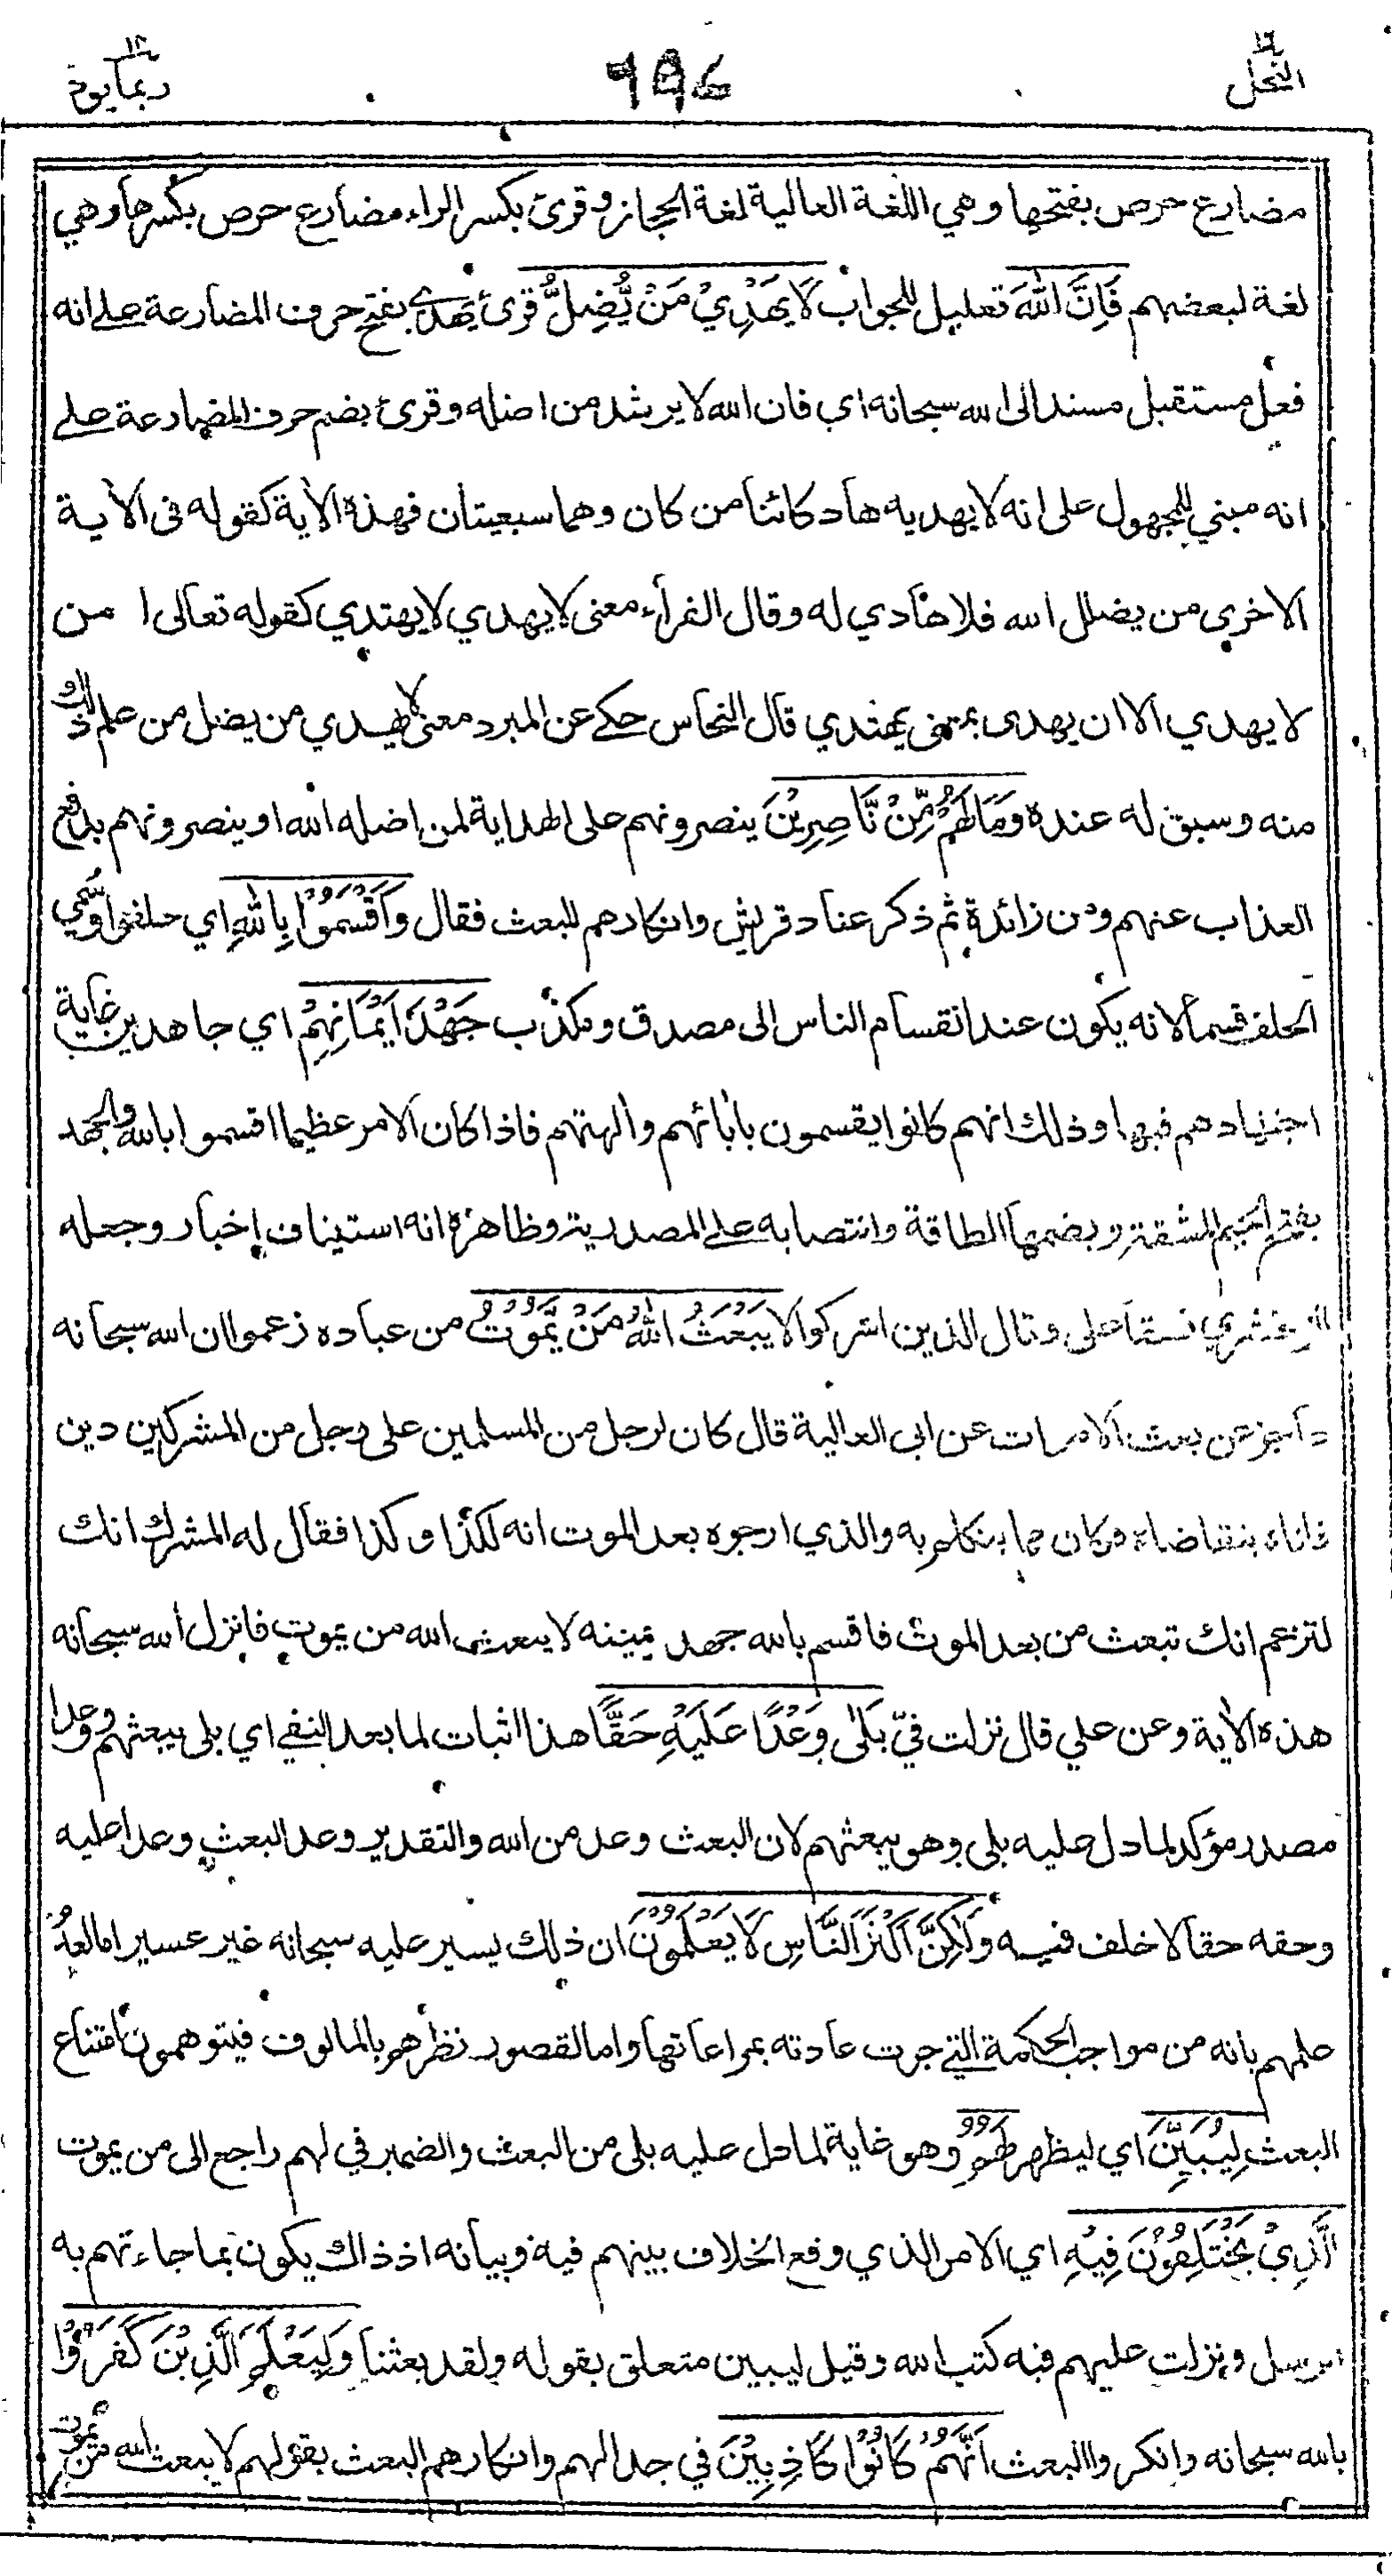 النحل ١٦
٦٩٤
ربما يود ١٤
مضارع حرص بفتحها وهي اللغة العالية لغة الحجاز وقرئ بكسر الراء مضارع حرص بكسرها وهي
لغة لبعضهم فَاِنَّ اللّٰهَ تعليل للجواب لَا يَهْدِيْ مَنْ يُّضِلُّ قرئ يَهْدِي بفتح حرف المضارعة على انه
فعل مستقبل مسند الى الله سبحانه اي فان الله لا يرشد من اضله وقرئ بضم حرف المضارعة على
انه مبني للمجهول على انه لا يهديه هاد كائنا من كان وهما سبعيتان فهذه الاٰية كقوله فى الاٰية
الاخرى من يضلل الله فلا هادي له وقال الفراء معنى لا يهدي لا يهتدي كقوله تعالى ا من
لا يهدي الا ان يهدى بمعنى يهتدي قال النحاس حكي عن المبرد معنى لا يهدي من يضل من علم ذلك
منه وسبق له عنده وَمَا لَهُمْ مِّنْ نَّاصِرِيْنَ ينصرونهم على الهداية لمن اضله الله او ينصرونهم بدفع
العذاب عنهم ومن زائدة ثم ذكر عناد قريش وانكارهم للبعث فقال وَاَقْسَمُوْا بِاللّٰهِ اي حلفوا وسُمي
الحلف قسما لانه يكون عند انقسام الناس الى مصدق ومكذب جَهْدَ اَيْمَانِهِمْ اي جاهدين غاية
اجتهادهم فيها وذلك انهم كانوا يقسمون باٰبائهم واٰلهتهم فاذا كان الامر عظيما اقسموا بالله والجهد
بفتح الجيم المشقة وبضمها الطاقة وانتصابه على المصدرية وظاهره انه استيناف اخبار وجعله
الزمخشري نسقا على وقال الذين اشركوا لَا يَبْعَثُ اللّٰهُ مَنْ يَّمُوْتُ من عباده زعموا ان الله سبحانه
عاجز عن بعث الاموات عن ابى العالية قال كان لرجل من المسلمين على رجل من المشركين دين
فاتاه يتقاضاه فكان مما يتكلم به والذي ارجوه بعد الموت انه لكذا وكذا فقال له المشرك انك
لتزعم انك تبعث من بعد الموت فاقسم بالله جهد يمينه لا يبعث الله من يموت فانزل الله سبحانه
هذه الاٰية وعن علي قال نزلت فيّ بَلٰى وَعْدًا عَلَيْهِ حَقًّا هذا اثبات لما بعد النفي اي بلى يبعثهم وعدا
مصدر مؤكد لما دل عليه بلى وهو يبعثهم لان البعث وعد من الله والتقدير وعد البعث وعدا عليه
وحقه حقا لا خلف فيه وَلٰكِنَّ اَكْثَرَ النَّاسِ لَا يَعْلَمُوْنَ ان ذلك يسير عليه سبحانه غير عسير اما لعدم
علمهم بانه من مواجب الحكمة التي جرت عادته بمراعاتها واما لقصور نظرهم بالمالوف فيتوهمون امتناع
البعث لِيُبَيِّنَ اي ليظهر لَهُمُ وهو غاية لما دل عليه بلى من البعث والضمير في لهم راجع الى من يموت
الَّذِيْ يَخْتَلِفُوْنَ فِيْهِ اي الامر الذي وقع الخلاف بينهم فيه وبيانه اذ ذاك يكون بما جاءتهم به
الرسل ونزلت عليهم فيه كتب الله وقيل ليبين متعلق بقوله ولقد بعثنا وَلِيَعْلَمَ الَّذِيْنَ كَفَرُوْا
بالله سبحانه وانكروا البعث اَنَّهُمْ كَانُوْا كَاذِبِيْنَ في جدالهم وانكارهم البعث بقولهم لا يبعث الله من يموت